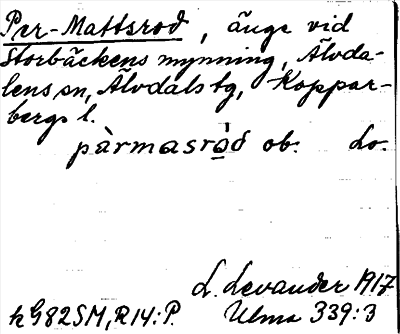 Per-Mattsrod, änge vid
Storbäckens mynning, Älvda-
lens sn, Älvdals tg, Koppar-
bergs l.
pàrmasrò̱d ob. Lo.
L. Levander 1917
k G82SM, R14:P. Ulma 339:3